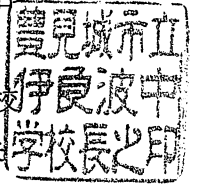 豊見城市立
伊良波中
学校長之印